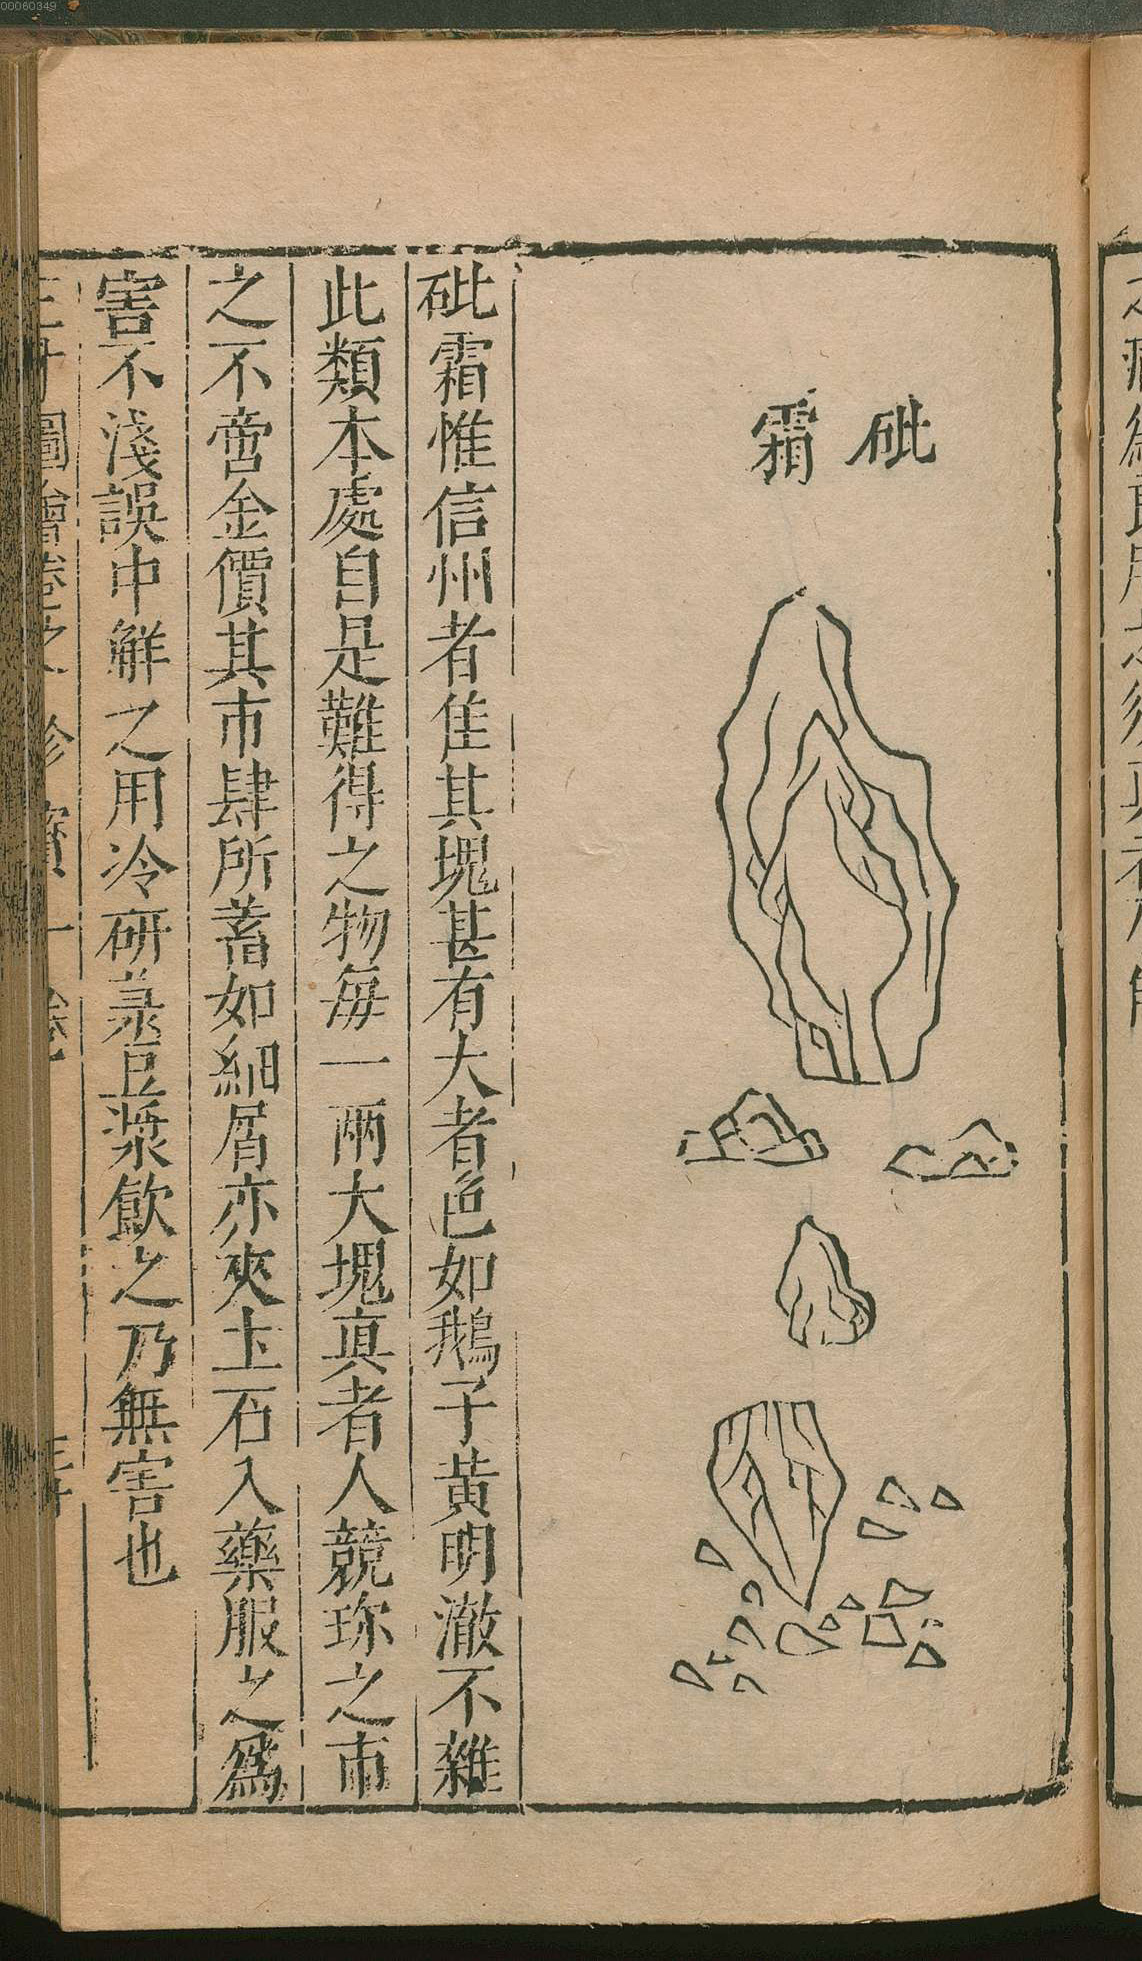 00060349
砒霜
砒霜惟信州者佳其塊甚有大者色如鵝子黃明澈不雜
此類本處自是難得之物每一兩大塊真者人競珍之市
之不啻金價其市肆所蓄如細屑亦夾土石入藥服之爲
害不淺誤中解之用冷研菉豆漿飲之乃無害也
三才圖會卷之 珍寶一卷